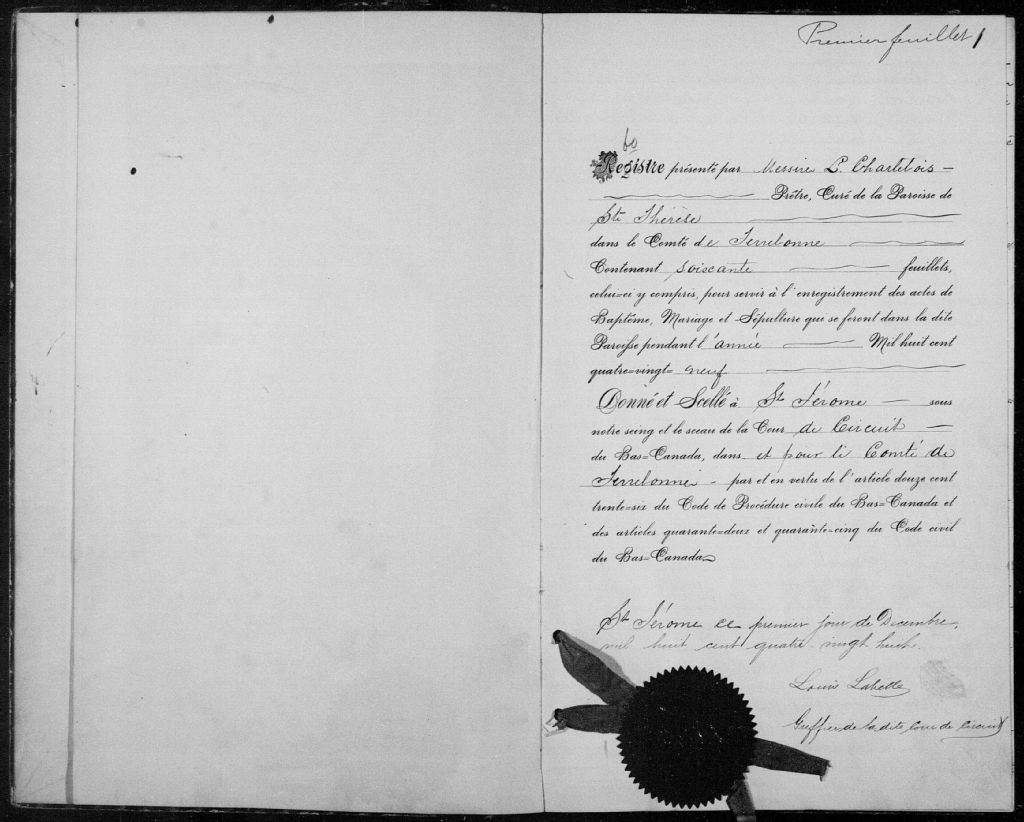 Premier feuillet 1
60
Registre présenté par Messire L. Charlebois
Prêtre, Curé de la Paroisse de
Ste Thérèse
dans le Comté de Terrebonne
Contenant soixante feuillets,
celui=ci y compris, pour servir à l'enregistrement des actes de
Baptême, Mariage et Sépulture qui se feront dans la dite
Paroisse pendant l'année Mil huit cent
quatre=vingt= neuf
Donné et Scellé à St Jérome sous
notre seing et le sceau de la Cour de Circuit
du Bas=Canada, dans et pour le Comté de
Terrebonne par et en vertu de l'article douze cent
trente=six du Code de Procédure civile du Bas=Canada et
des articles quarante=deux et quarante=cinq du Code civil
du Bas=Canada
St Jérome ce premier jour de Decembre,
mil huit cent quatre-vingt huit.
Louis Labelle
Greffier de la dite Cour de Circuit